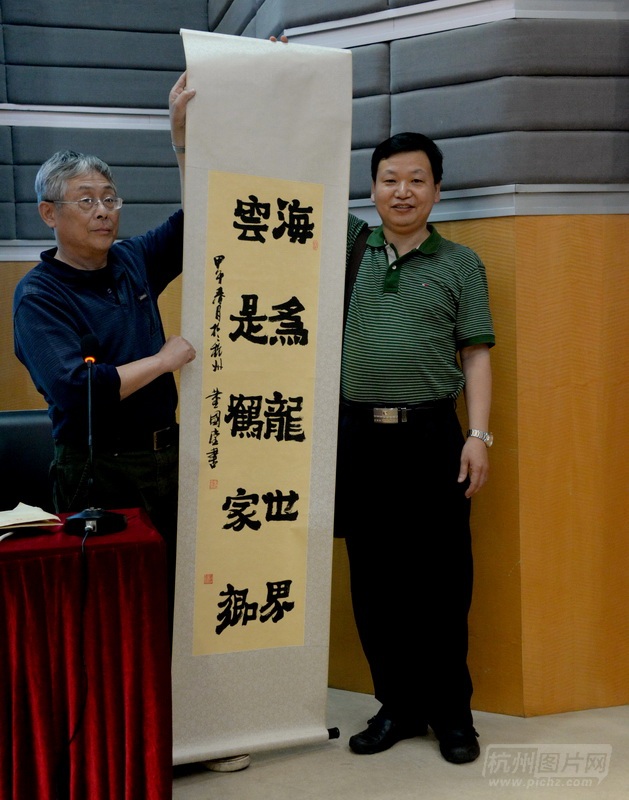 海為龍世界
雲是鶴家鄉
甲午春月於杭州
國
書
杭州图片网
www.pichz.com